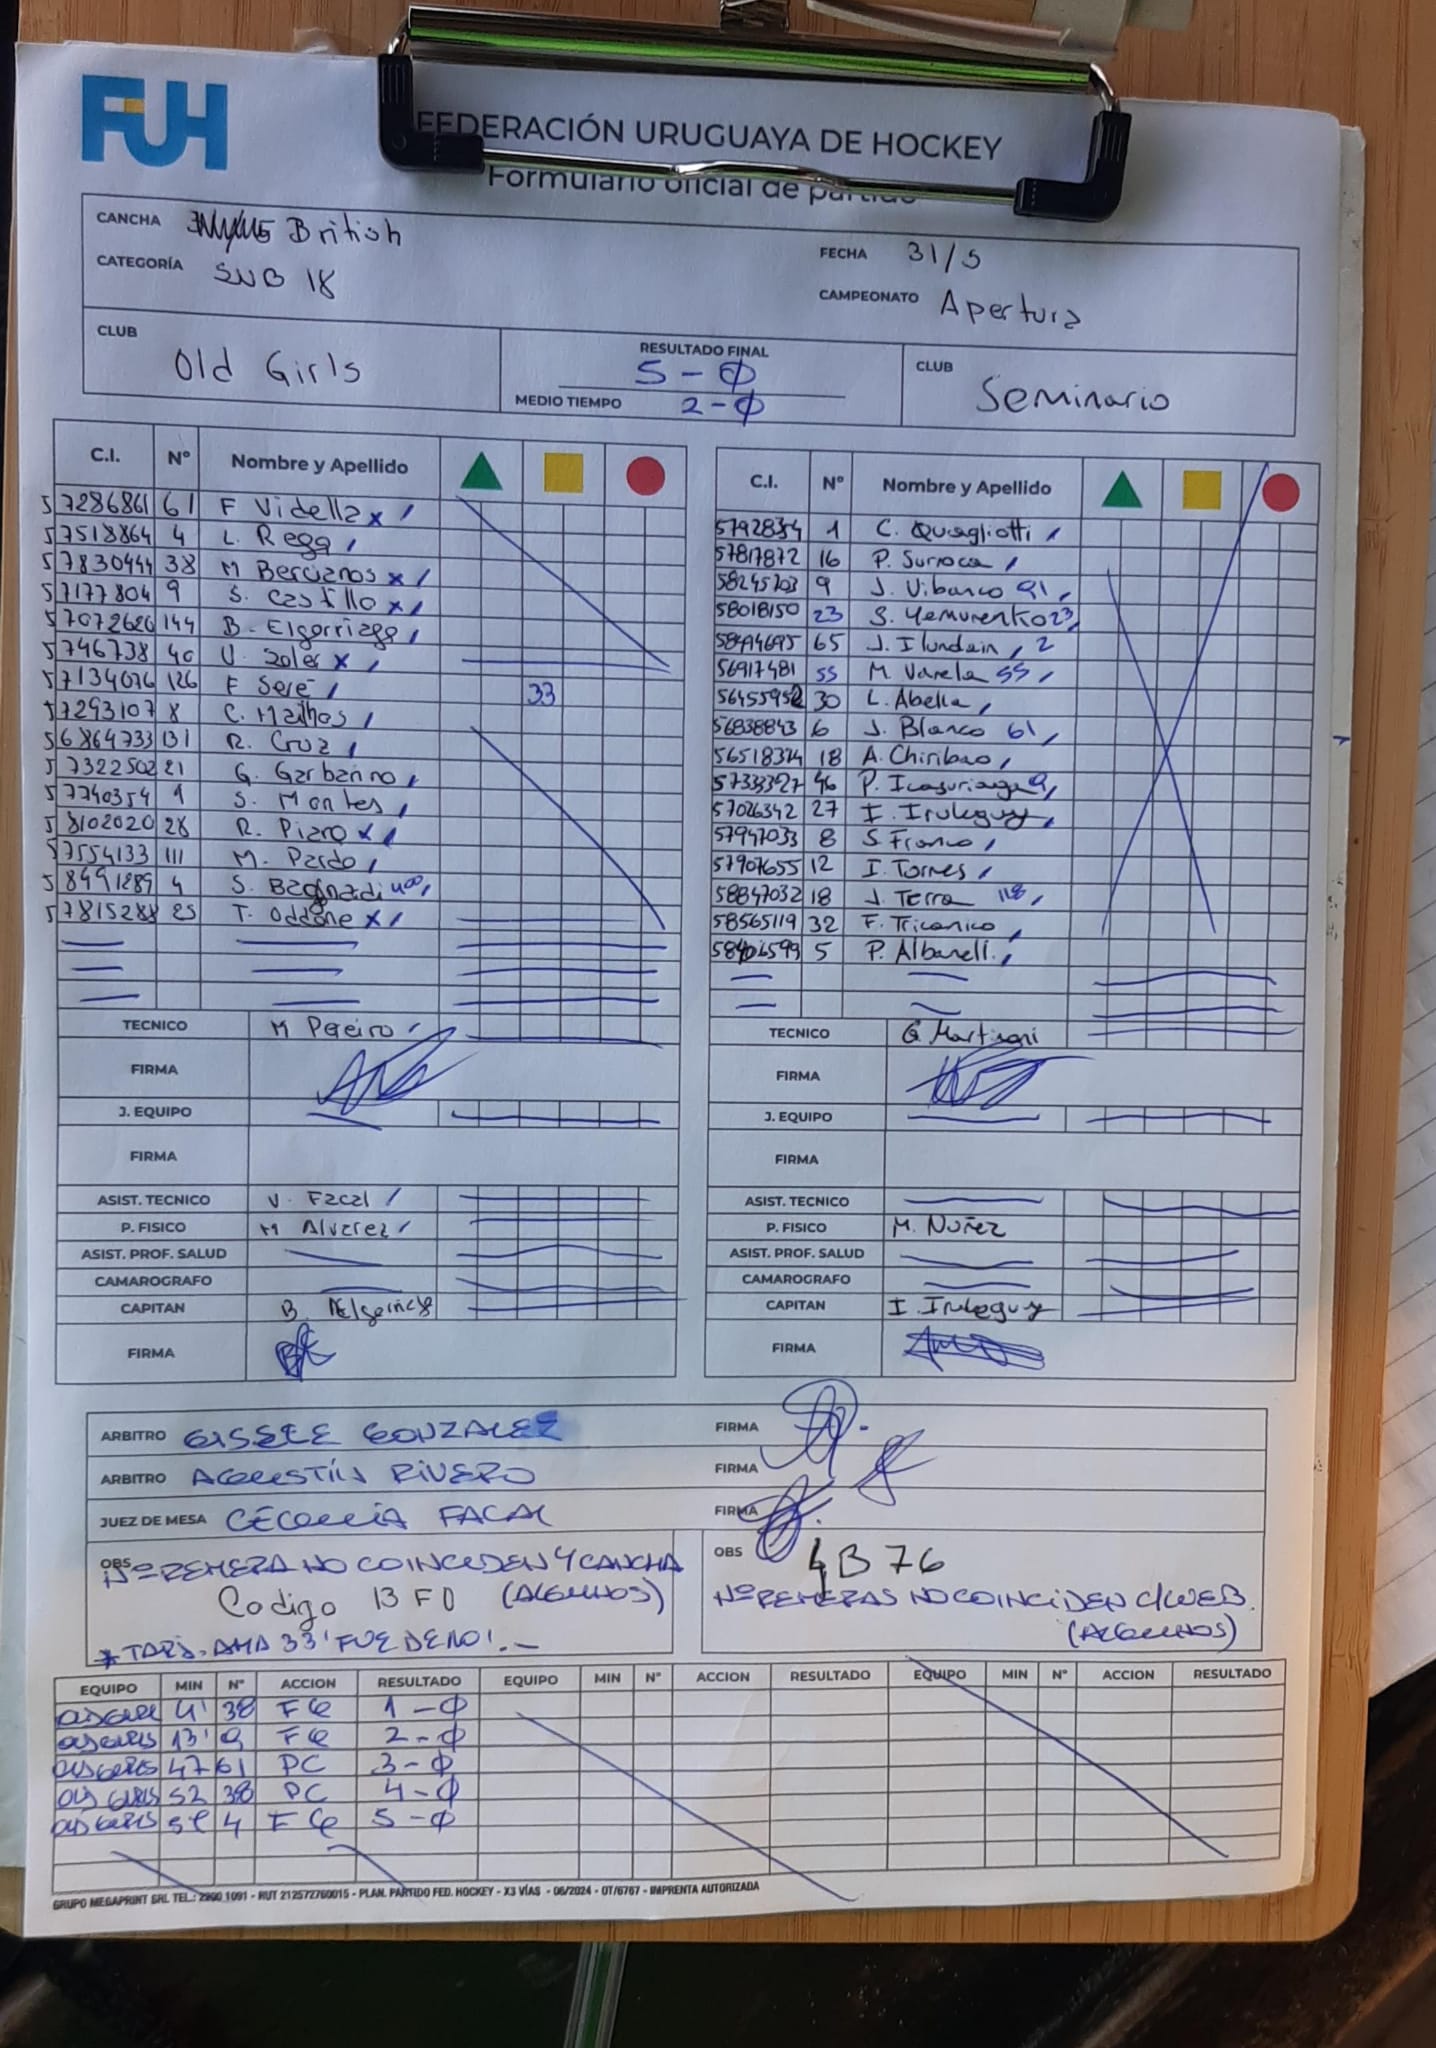 FUH
FEDERACIÓN URUGUAYA DE HOCKEY
Formulario oficial de partido
CANCHA British
FECHA 31/5
CATEGORÍA SUB 18
CAMPEONATO Apertura
CLUB Old Girls
RESULTADO FINAL 5-0
MEDIO TIEMPO 2-0
CLUB Seminario
C.I. Nº Nombre y Apellido
57286861 61 F Vidella x
57518864 4 L. Rega
57830444 38 M Bercianos x
57177804 9 S. Castillo x
57072620 144 B. Elgorriaga
5746738 40 V. Soler x
57134076 126 F Seré 33
57293107 8 C. Mailhos
56864733 131 R. Cruz
57322502 21 G. Garbarino
57740354 1 S. Montes
58102020 28 R. Piero x
57554133 111 M. Pardo
58491289 4 S. Bagnadi 400
57815288 25 T. Oddone x
TECNICO M Pereiro
FIRMA
J. EQUIPO
FIRMA
ASIST. TECNICO V. Facal
P. FISICO M Alvarez
ASIST. PROF. SALUD
CAMAROGRAFO
CAPITAN B.
FIRMA
C.I. Nº Nombre y Apellido
57928354 1 C. Quagliotti
57817872 16 P. Surroca
58245203 9 J. Vibanco 91
58018150 23 S. Yemurenko 23
65 J. Ilundain 2
56917481 55 M. Varela 55
56455952 30 L. Abella
56838843 6 J. Blanco 61
56518374 18 A. Chiribao
57333327 46 P. Icasuriaga 9
57026342 27 I. Iruleguy
57947033 8 S Franco
57907655 12 I. Torres
58847032 18 J. Terra 118
58565119 32 F. Tricanico
5 P. Albanell.
TECNICO G Martinoni
FIRMA
J. EQUIPO
FIRMA
ASIST. TECNICO
P. FISICO M. Nuñez
ASIST. PROF. SALUD
CAMAROGRAFO
CAPITAN I. Iruleguy
FIRMA
ARBITRO GISSELE GONZALEZ FIRMA
ARBITRO AGUSTÍN RIVERO FIRMA
JUEZ DE MESA CECILIA FACAL FIRMA
OBS Nº REMERA NO COINCIDEN Y CANCHA
Codigo 13F0 (ALGUNOS)
* TARJ. AMA 33' FUE DE 10'.—
OBS 4B76
Nº REMERAS NO COINCIDEN C/WEB.
(ALGUNOS)
EQUIPO MIN Nº ACCION RESULTADO EQUIPO MIN Nº ACCION RESULTADO EQUIPO MIN Nº ACCION RESULTADO
OLD GIRLS 4' 38 FG 1-0
OLD GIRLS 13' 9 FG 2-0
OLD GIRLS 47 61 PC 3-0
OLD GIRLS 52 38 PC 4-0
OLD GIRLS 4 FG 5-0
GRUPO MEGAPRINT SRL TEL.: 2900 1091 - RUT 212572760015 - PLAN. PARTIDO FED. HOCKEY - X3 VÍAS - 06/2024 - OT/6767 - IMPRENTA AUTORIZADA